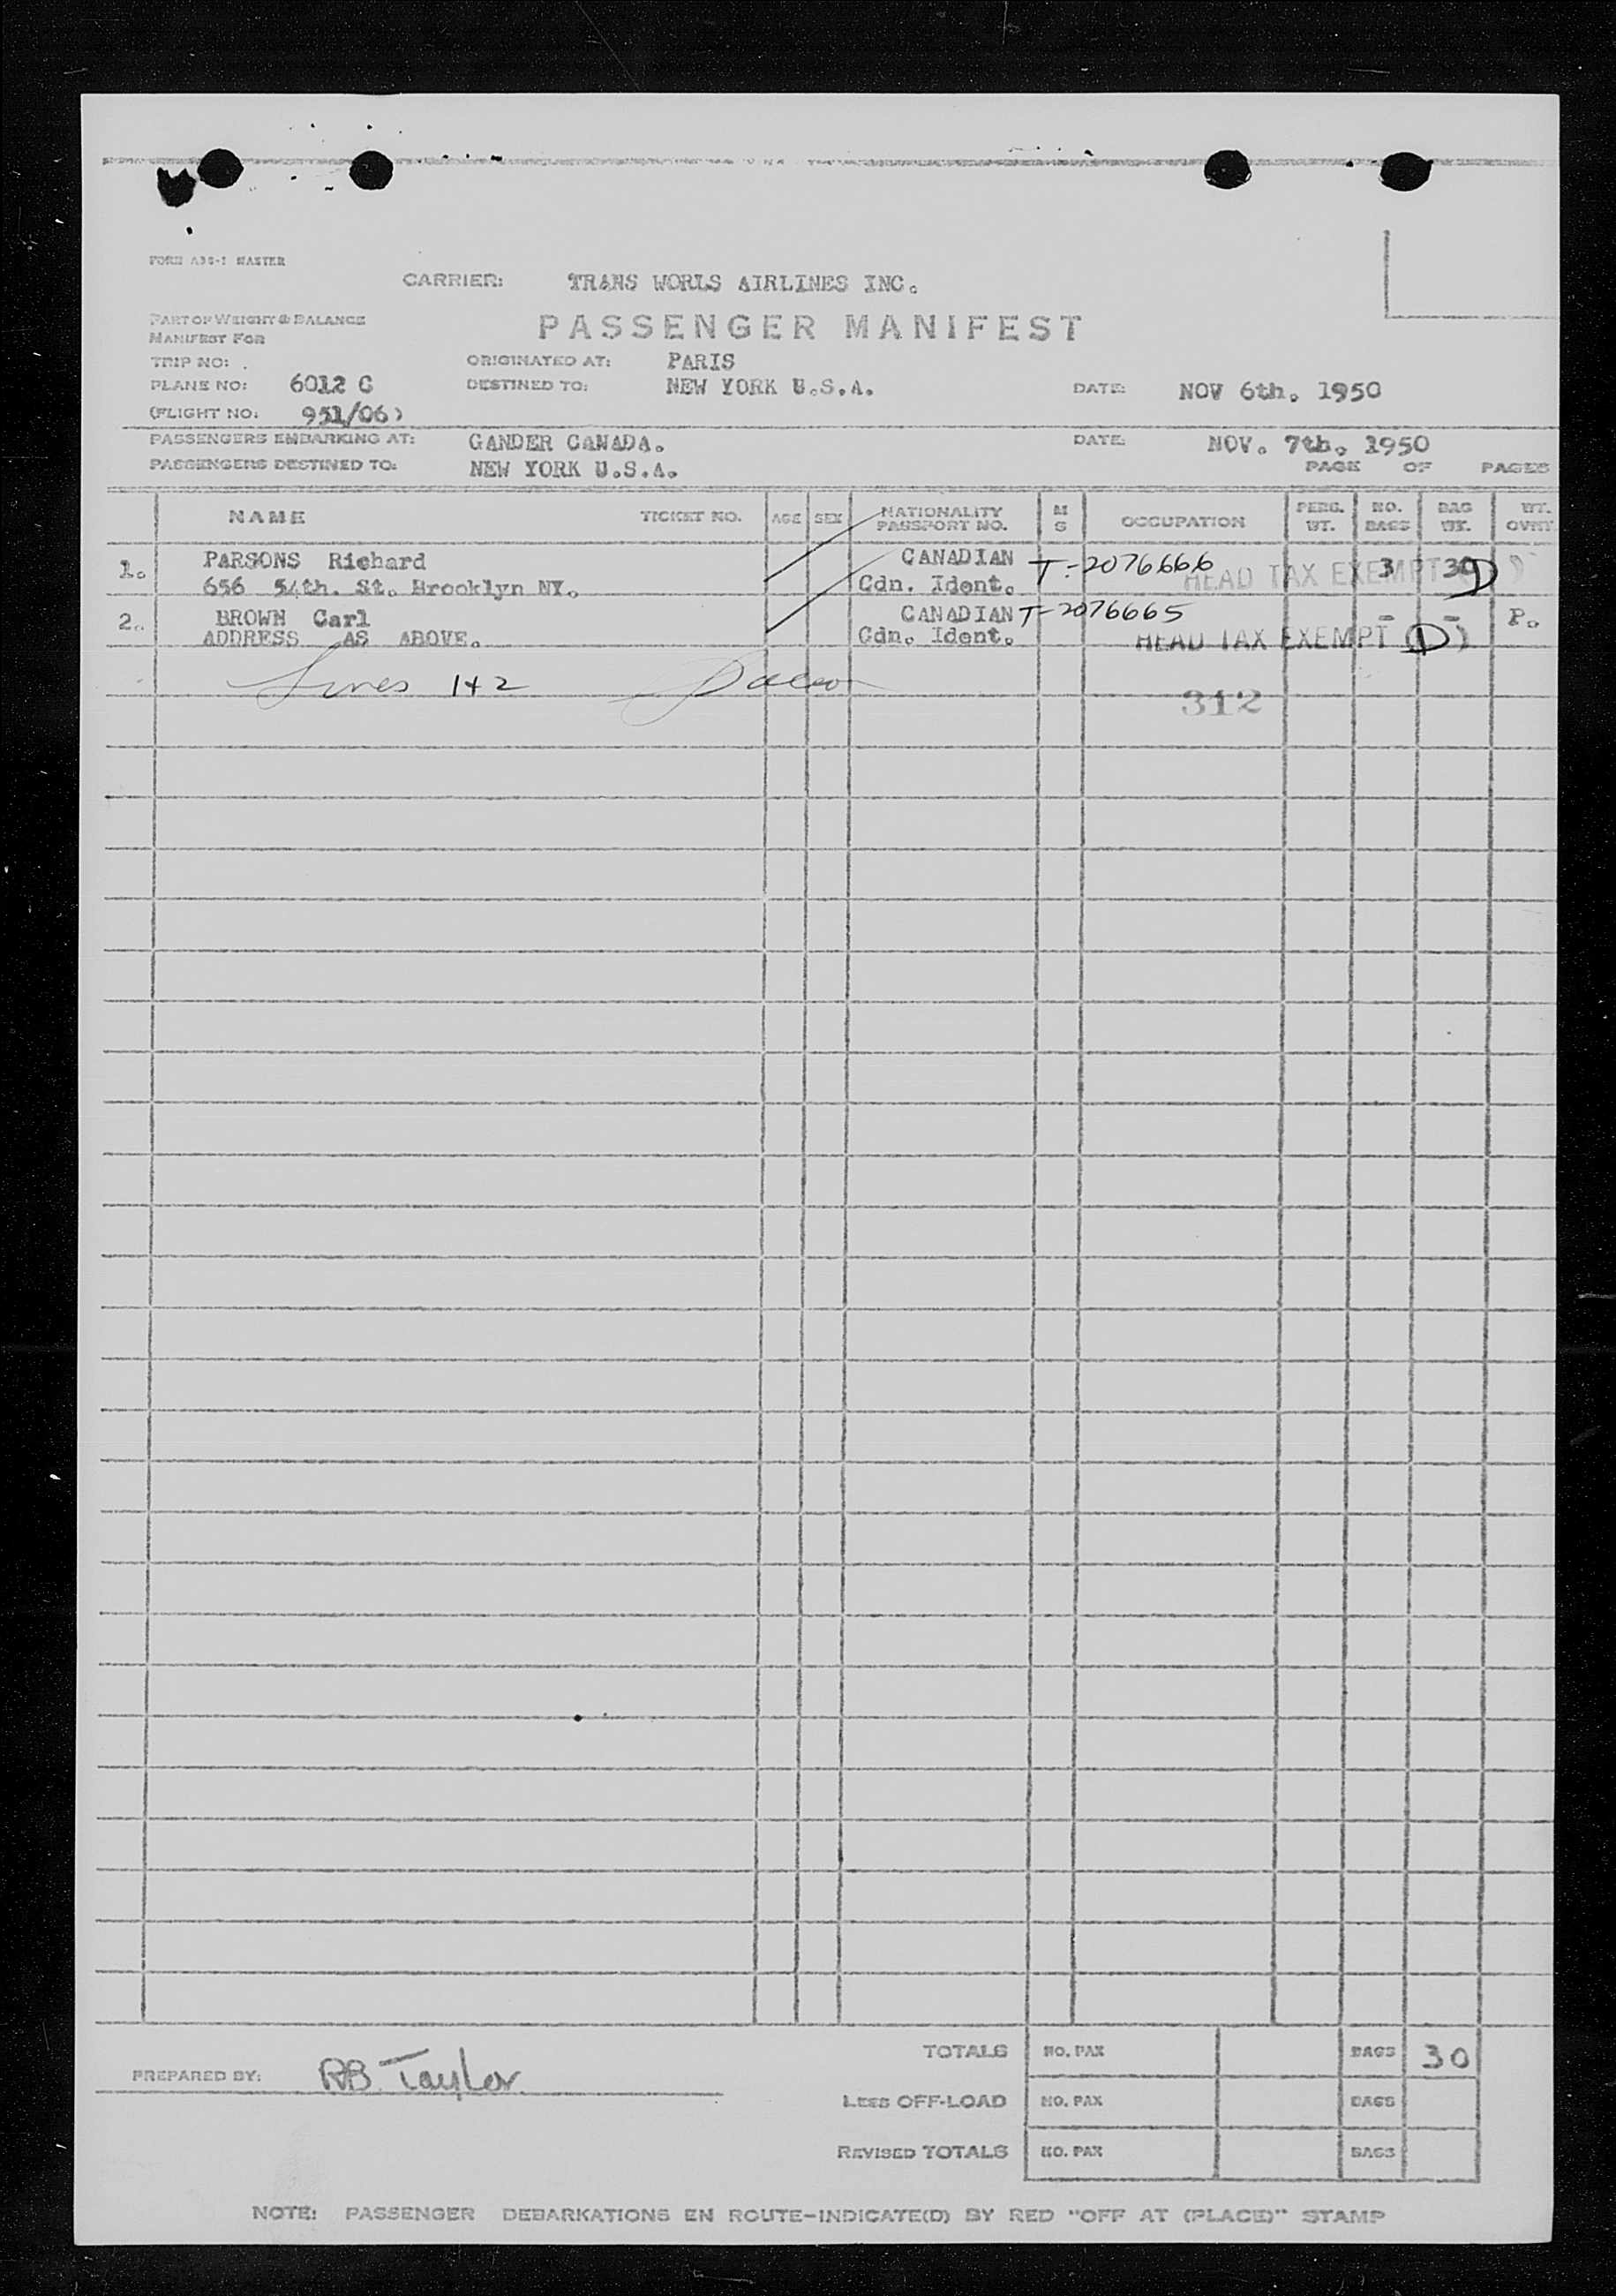 FORM A36-1 MASTER
CARRIER: TRANS WORLS AIRLINES INC.
PART OF WEIGHT & BALANCE
MANIFEST FOR
PASSENGER MANIFEST
TRIP NO: . ORIGINATED AT: PARIS
PLANE NO: 6012 C DESTINED TO: NEW YORK U.S.A. DATE: NOV 6th. 1950
(FLIGHT NO: 951/06)
PASSENGERS EMBARKING AT: GANDER CANADA. DATE: NOV. 7th. 1950
PASSENGERS DESTINED TO: NEW YORK U.S.A. PAGE OF PAGES
NAME TICKET NO. AGE SEX NATIONALITY PASSPORT NO. M S OCCUPATION PERG. WT. NO. BAGS BAG WT. WT. OVNT
1. PARSONS Richard CANADIAN T-2076666 HEAD TAX EXEMPT 3 30 D
656 54th. St. Brooklyn NY. Cdn. Ident.
2. BROWN Carl CANADIAN T-2076665 - - P.
ADDRESS AS ABOVE. Cdn. Ident. HEAD TAX EXEMPT (D)
Lines 1+2
312
TOTALS NO. PAX BAGS 30
PREPARED BY: RB Taylor
LESS OFF-LOAD NO. PAX BAGS
REVISED TOTALS NO. PAX BAGS
NOTE: PASSENGER DEBARKATIONS EN ROUTE-INDICATE(D) BY RED "OFF AT (PLACE)" STAMP